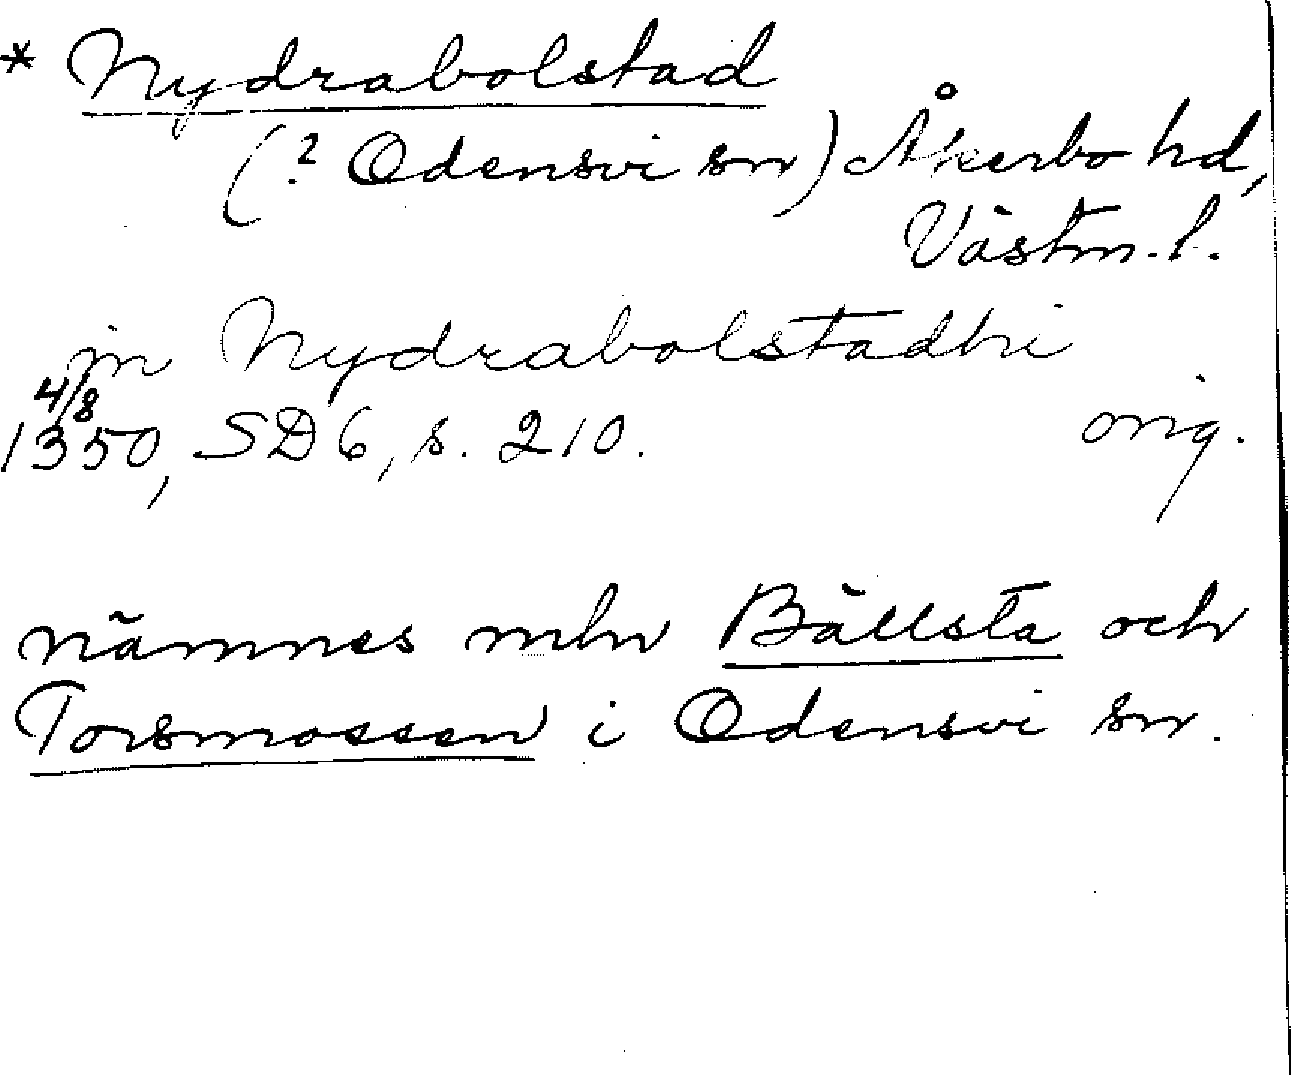 * Nydrabolstad
(? Odensvi sn) Åkerbo hd,
Västm. l.
in Nydrabolstadhi
4/8
1350, SD 6, s. 210. orig.
nämnes mln Bällsta och
Torsmossen i Odensvi sn.